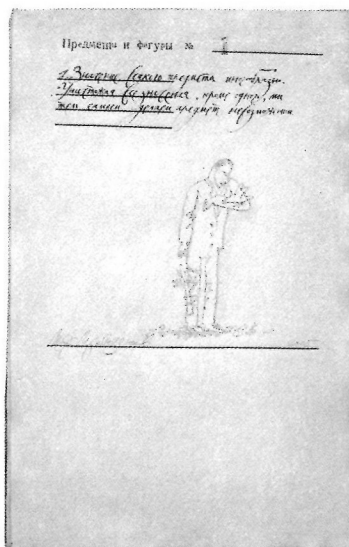 Предметы и фигуры № 1
1. Значение всякого предмета многообразно.
Уничтожая все значения, кроме одного, мы
тем самым делаем предмет невозможным